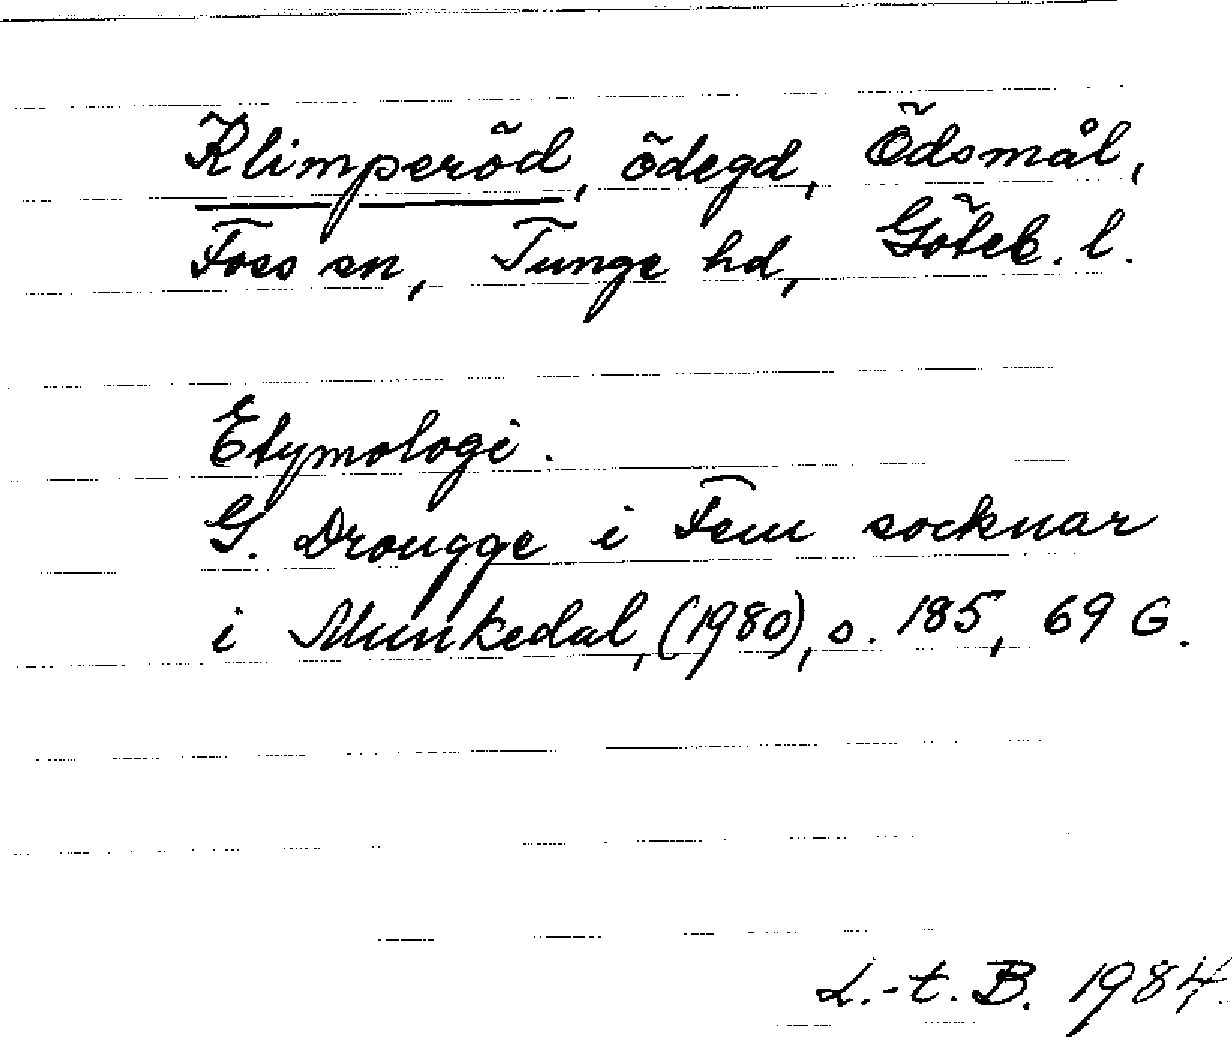 Klimperöd, ödegd, Ödsmål,
Foss sn, Tunge hd, Göteb. l.
Etymologi.
G. Drougge i Fem socknar
i Munkedal, (1980), s. 185, 69 G.
L.-t. B. 1984.